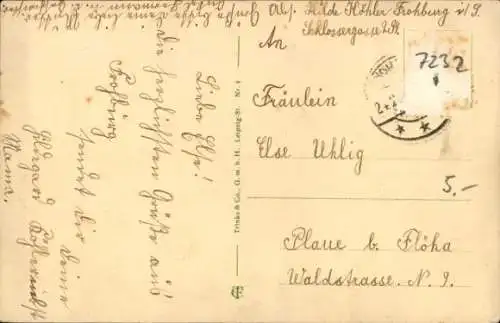 Abs. Hilde Köhler Frohburg i/S.
Schlossergasse
An
Fräulein
Else Uhlig
Plaue b. Flöha
Waldstrasse. N. 9.
7232
5.-
Liebe Else!
Die herzlichsten Grüße aus
Frohburg
sendet Dir Deine
Hildgard Köhler nebst
Mama.
Trinks & Co., G. m. b. H., Leipzig